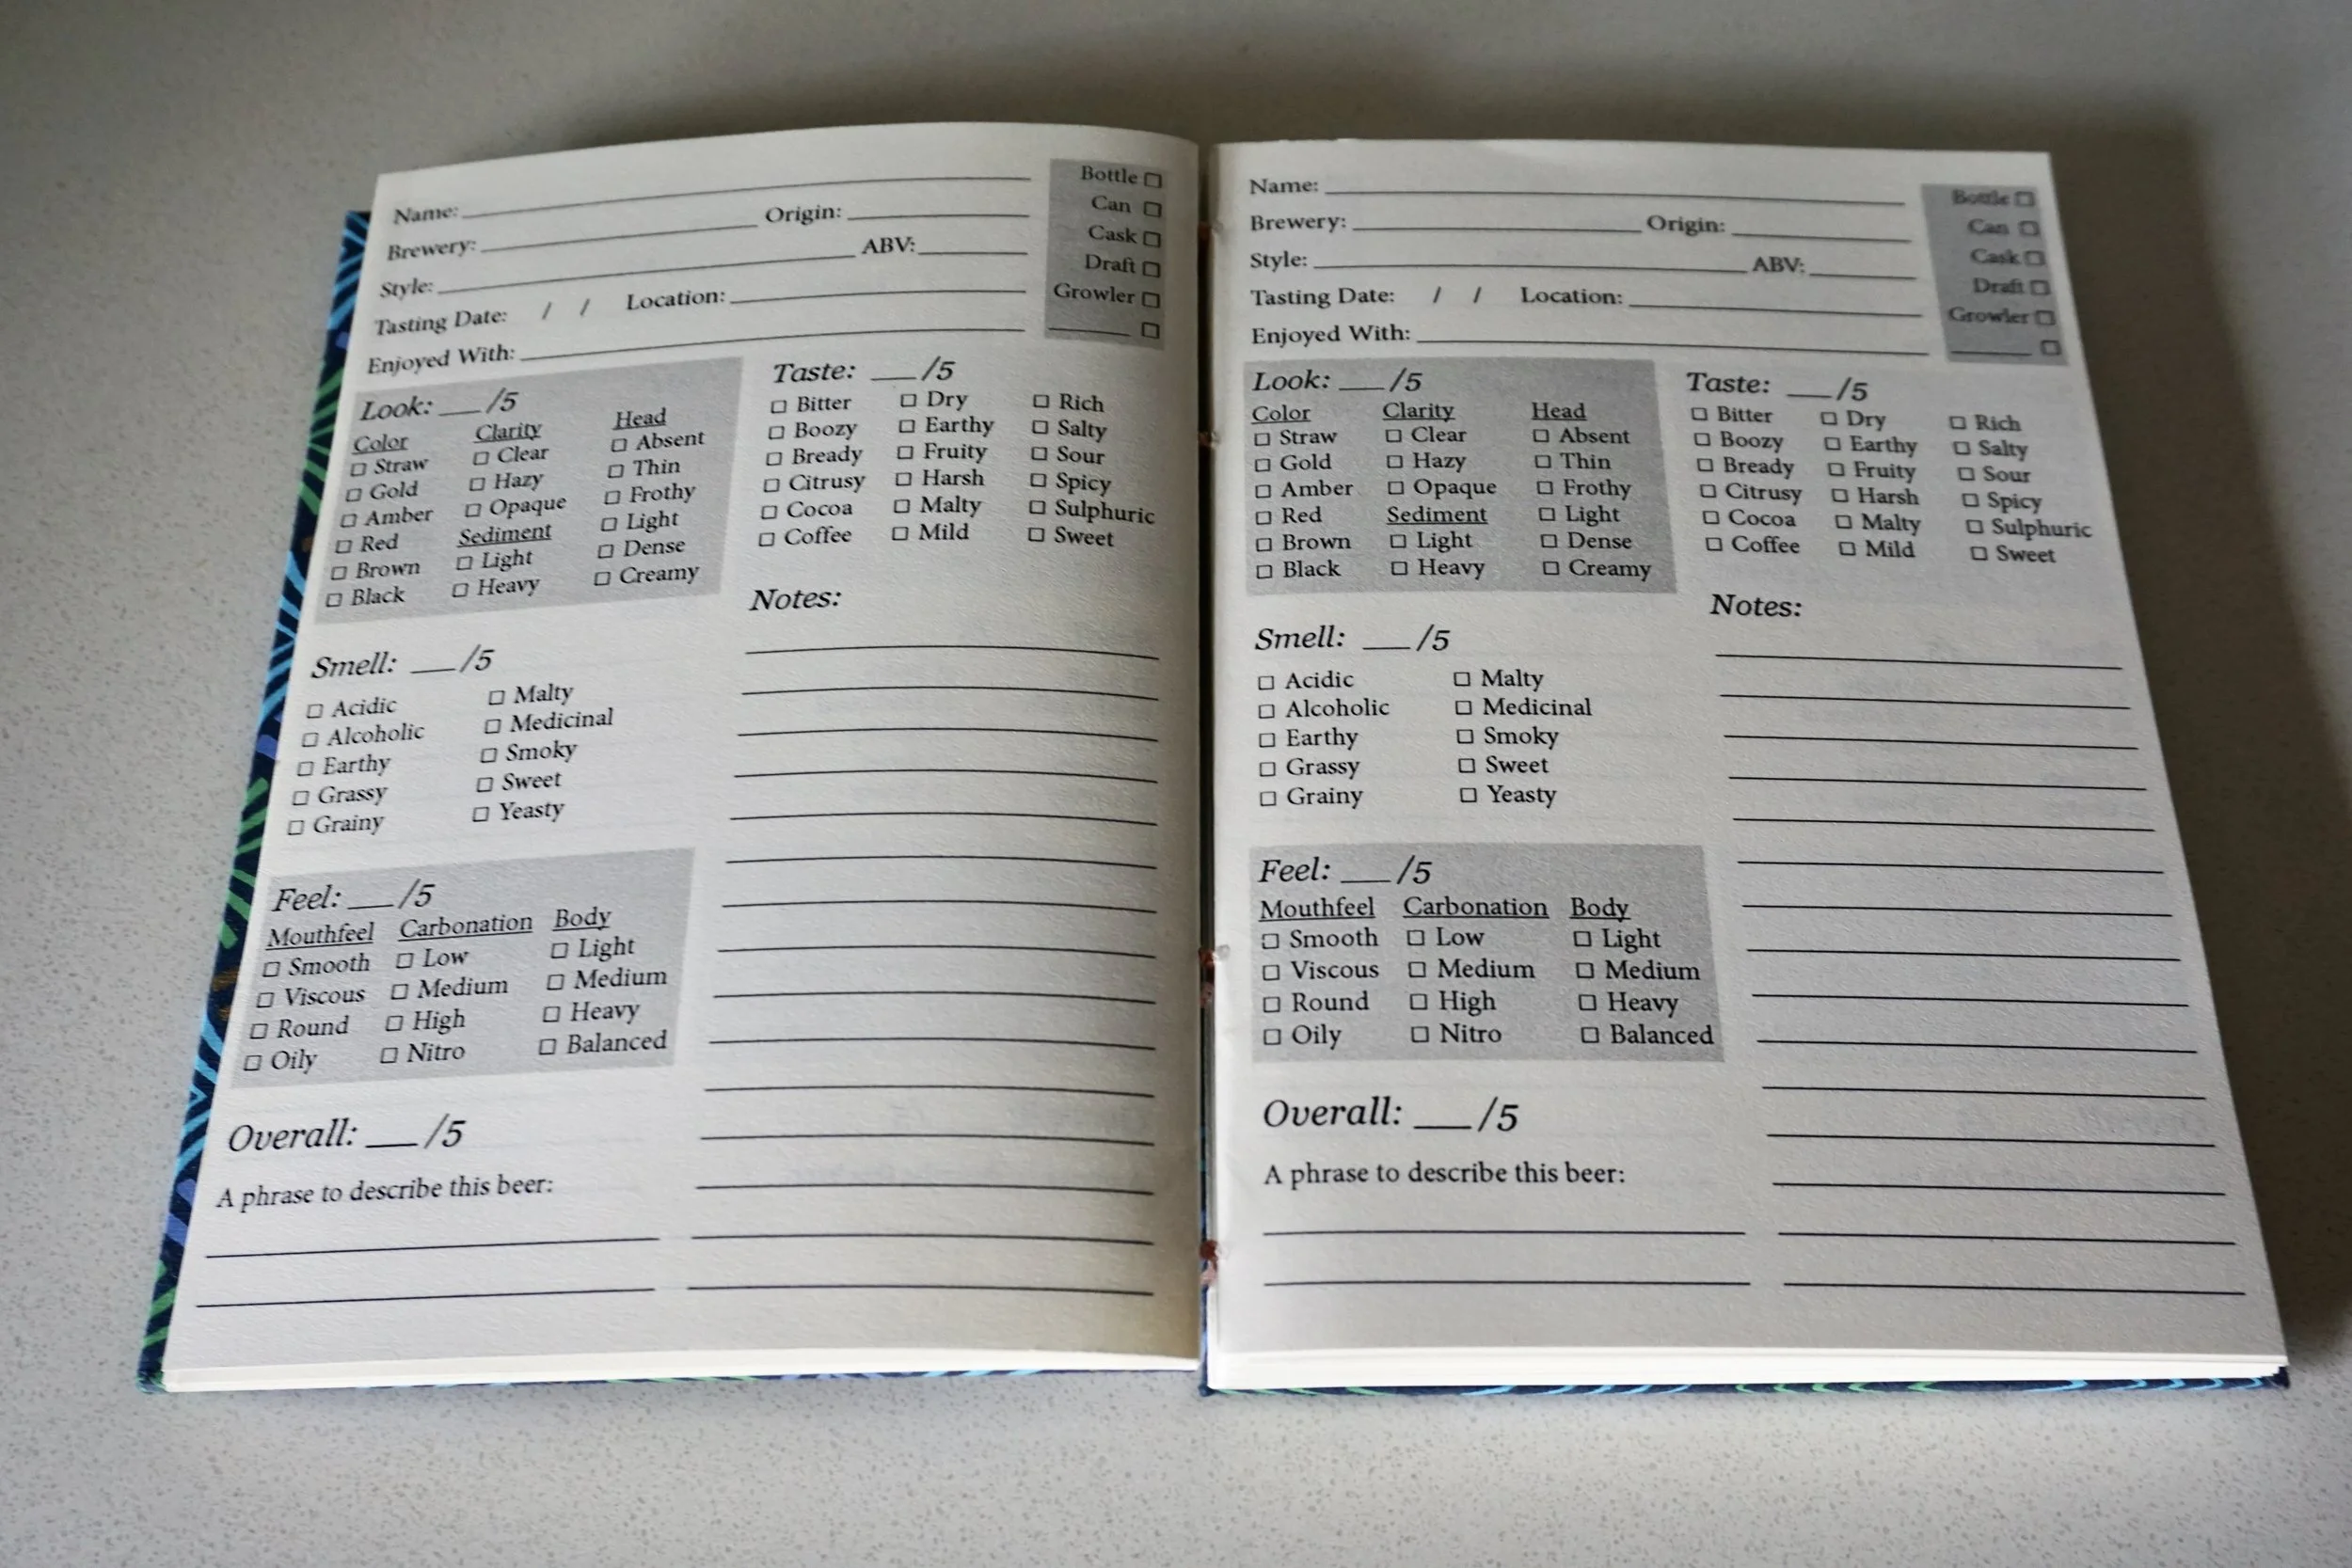 Name:
Brewery: Origin:
Style: ABV:
Tasting Date: / / Location:
Enjoyed With:
Bottle
Can
Cask
Draft
Growler
Look: /5
Color Clarity Head
Straw Clear Absent
Gold Hazy Thin
Amber Opaque Frothy
Red Sediment Light
Brown Light Dense
Black Heavy Creamy
Taste: /5
Bitter Dry Rich
Boozy Earthy Salty
Bready Fruity Sour
Citrusy Harsh Spicy
Cocoa Malty Sulphuric
Coffee Mild Sweet
Smell: /5
Acidic Malty
Alcoholic Medicinal
Earthy Smoky
Grassy Sweet
Grainy Yeasty
Feel: /5
Mouthfeel Carbonation Body
Smooth Low Light
Viscous Medium Medium
Round High Heavy
Oily Nitro Balanced
Overall: /5
A phrase to describe this beer:
Notes:
Name:
Brewery: Origin:
Style: ABV:
Tasting Date: / / Location:
Enjoyed With:
Bottle
Can
Cask
Draft
Growler
Look: /5
Color Clarity Head
Straw Clear Absent
Gold Hazy Thin
Amber Opaque Frothy
Red Sediment Light
Brown Light Dense
Black Heavy Creamy
Taste: /5
Bitter Dry Rich
Boozy Earthy Salty
Bready Fruity Sour
Citrusy Harsh Spicy
Cocoa Malty Sulphuric
Coffee Mild Sweet
Smell: /5
Acidic Malty
Alcoholic Medicinal
Earthy Smoky
Grassy Sweet
Grainy Yeasty
Feel: /5
Mouthfeel Carbonation Body
Smooth Low Light
Viscous Medium Medium
Round High Heavy
Oily Nitro Balanced
Overall: /5
A phrase to describe this beer:
Notes: